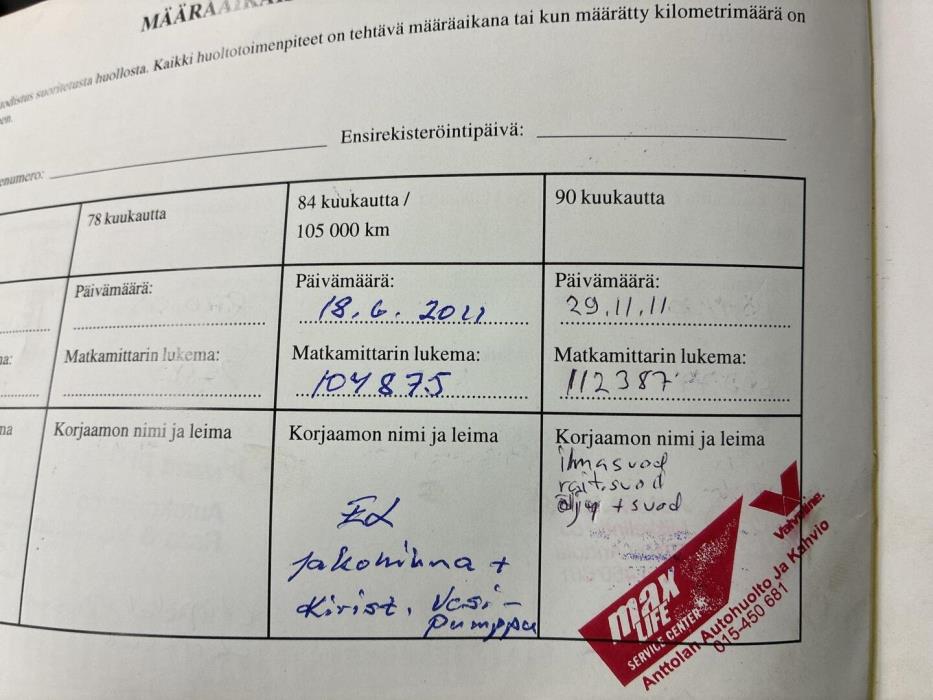 MÄÄRÄAIKAIS
Kaikki huoltotoimenpiteet on tehtävä määräaikana tai kun määrätty kilometrimäärä on
suoritetusta huollosta.
Ensirekisteröintipäivä:
enumero:
78 kuukautta
84 kuukautta /
105 000 km
90 kuukautta
Päivämäärä:
Päivämäärä:
18.6. 2011
Päivämäärä:
29.11.11
Matkamittarin lukema:
Matkamittarin lukema:
104875
Matkamittarin lukema:
112387
Korjaamon nimi ja leima
Korjaamon nimi ja leima
Jakohihna +
Kirist. Vesi-
pumppu
Korjaamon nimi ja leima
ilmasuod
rait.suod
öljy + suod
Valvoline.
max
LIFE
SERVICE CENTER
Anttolan Autohuolto Ja Kahvio
015-450 681